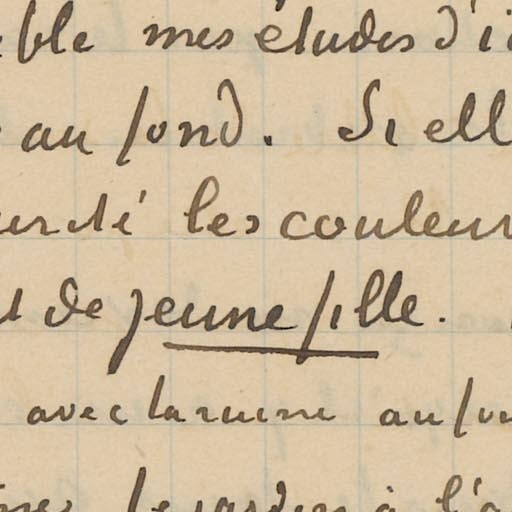 mes études d'i
au fond. Si ell
les couleur
de jeune fille.
avec la ruine au fon
le jardin à l'a